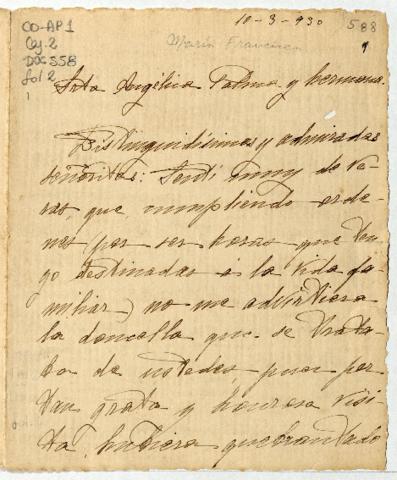 10-3-930
588
CO-AP1
Caj. 2
Doc 558
fol 2
1
Marín Francisca
Srta Angélica Palma y hermana.
Distinguidísimas y admiradas
señoritas: Sentí muy de ve-
ras que, cumpliendo orde-
nes (por ser horas que ten
go destinadas a la vida fa-
miliar) no me advirtiera
la doncella que se trata-
ba de ustedes, pues por
tan grata y honrosa visi
ta, hubiera quebrantado